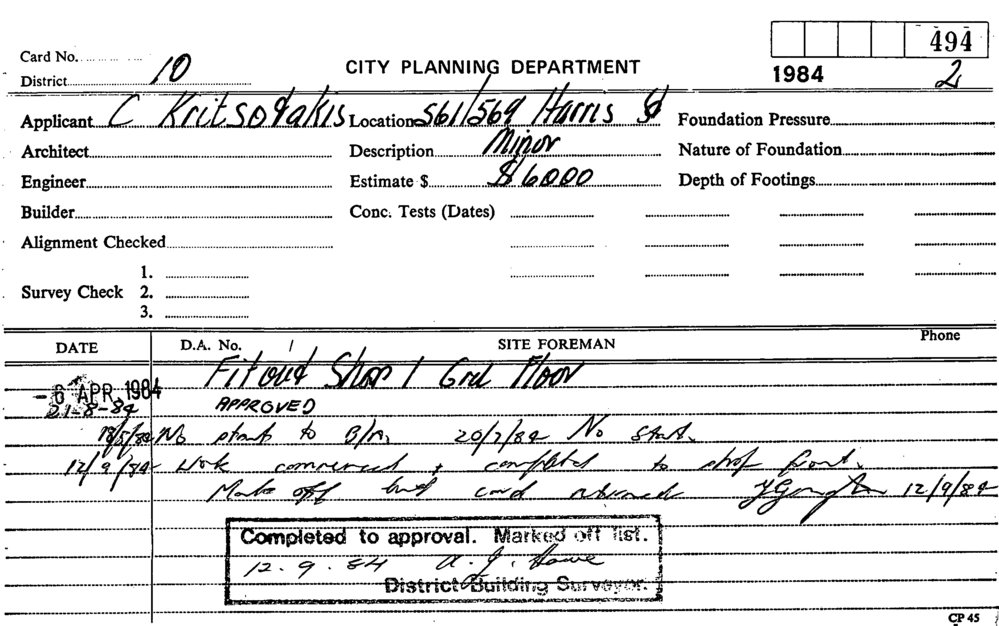 494
Card No.
CITY PLANNING DEPARTMENT
1984 2
District 10
Applicant C Kritsotakis Location 561/569 Harris St Foundation Pressure
Architect Description Minor Nature of Foundation
Engineer Estimate $ $6000 Depth of Footings
Builder Conc. Tests (Dates)
Alignment Checked
1.
Survey Check 2.
3.
DATE D.A. No. / SITE FOREMAN Phone
Fitout Shop 1 Grd Floor
- 6 APR 1984
21-8-84 APPROVED
18/5/84 No start to B/A. 20/7/84 No start.
12/9/84 Work commenced & completed to shop front.
Mark off card 12/9/84
Completed to approval. Marked off list.
12.9.84 A.J. Howe
District Building Surveyor.
CP 45